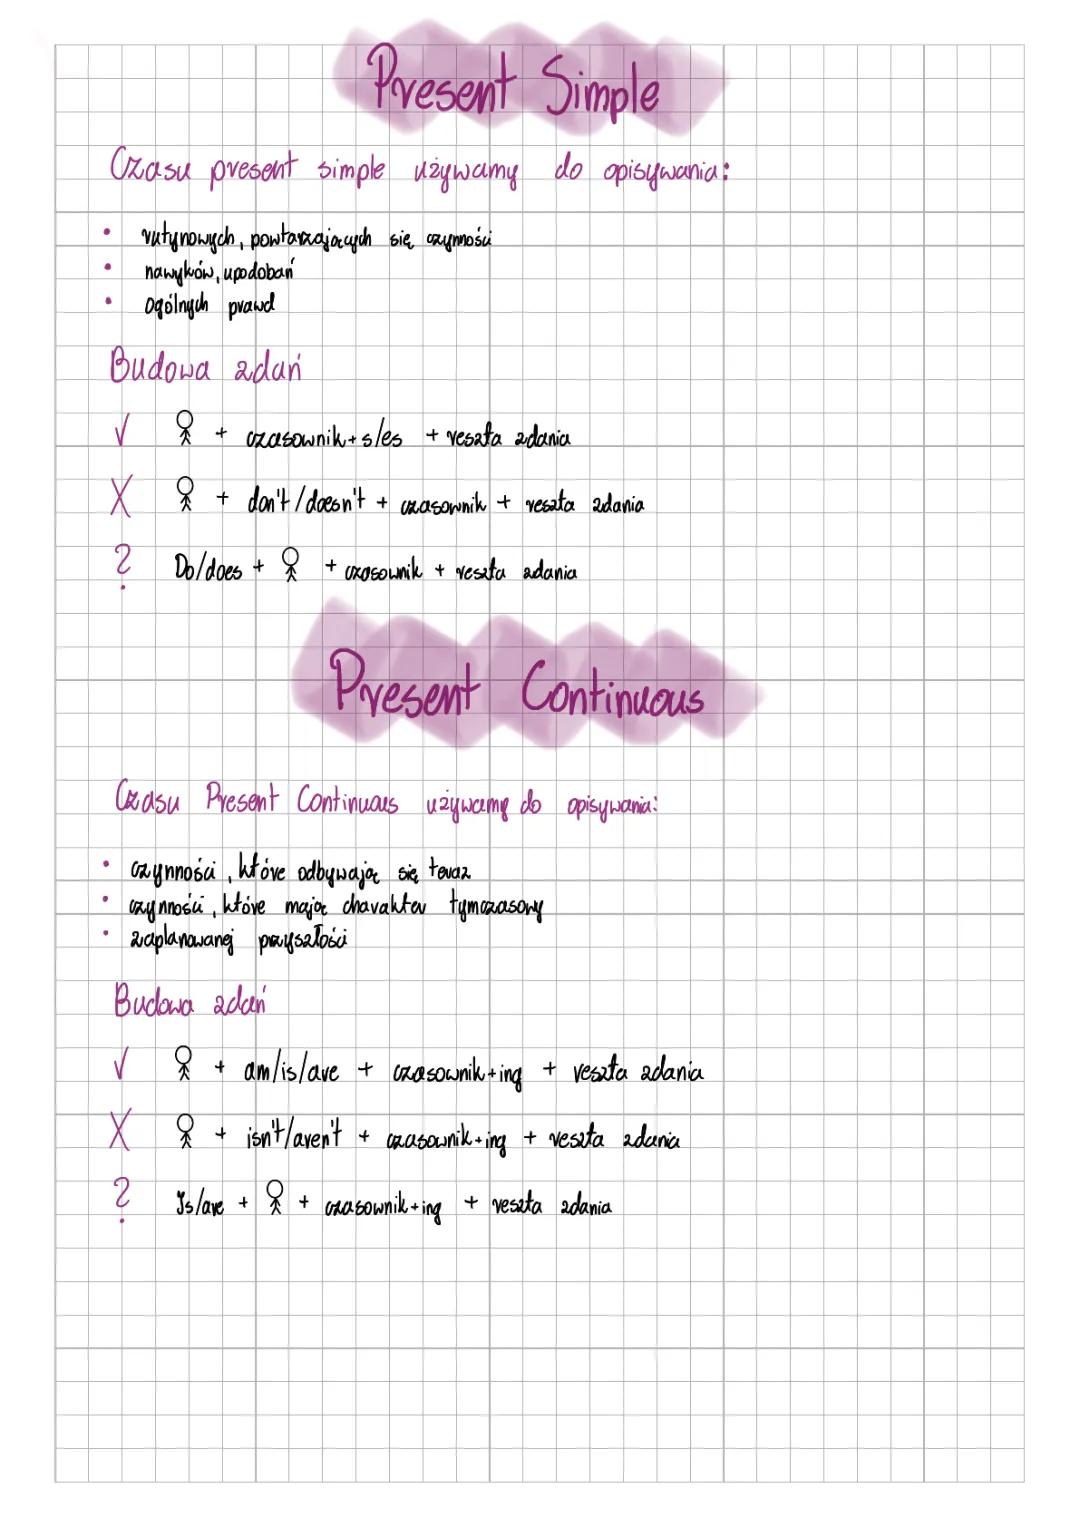 Present Simple
Czasu present simple używamy do opisywania:
• rutynowych, powtarzających się czynności
• nawyków, upodobań
• ogólnych prawd
Budowa zdań
√ + czasownik+s/es + reszta zdania
X + don't/doesn't + czasownik + reszta zdania
? Do/does + + czasownik + reszta zdania
Present Continuous
Czasu Present Continuous używamy do opisywania:
• czynności, które odbywają się teraz
• czynności, które mają charakter tymczasowy
• zaplanowanej przyszłości
Budowa zdań
√ + am/is/are + czasownik+ing + reszta zdania
X + isn't/aren't + czasownik+ing + reszta zdania
? Is/are + + czasownik+ing + reszta zdania